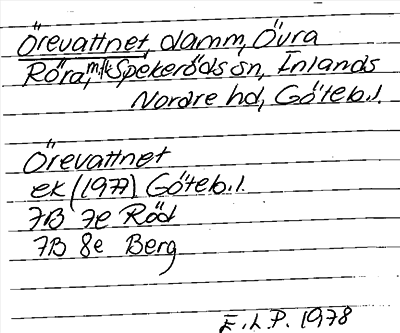 Örevattnet, damm, Övra
Röra, mfl Spekeröds sn, Inlands
Nordre hd, Göteb.l.
Örevattnet
ek (1977) Göteb.l.
7B 7e Röd
7B 8e Berg
E.L.P. 1978